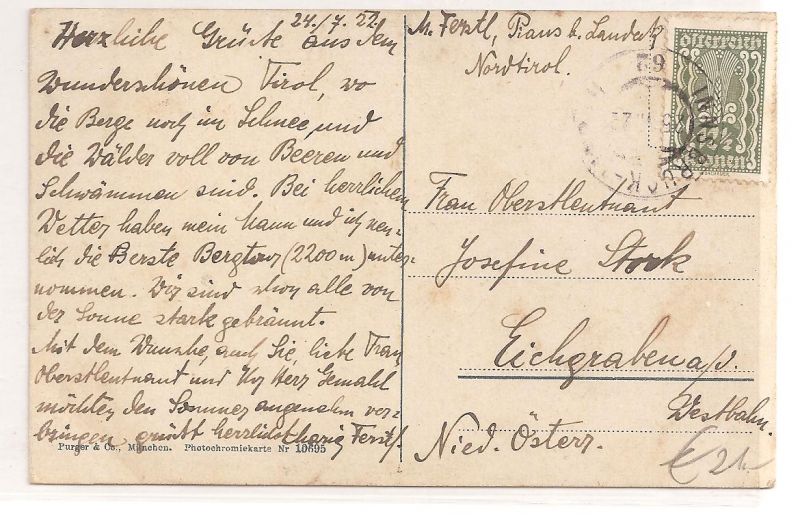 24./7. 22.
Herzliche Grüße aus dem
wunderschönen Tirol, wo
die Berge noch im Schnee, und
die Wälder voll von Beeren und
Schwämmen sind. Bei herrlichem
Wetter haben mein Mann und ich neu-
lich die Berste Bergtour (2200 m) unter-
nommen. Wir sind schon alle von
der Sonne stark gebräunt.
Mit dem Wunsche, auch Sie, liebe Frau
Oberstleutnant und Ihr Herr Gemahl
möchten den Sommer angenehm ver-
bringen, grüßt herzlichst Ferstl.
Purger & Co., München. Photochromiekarte Nr 10695
M. Ferstl, Pians b. Landeck
Nordtirol.
Österreich
INNSBRUCK
Frau Oberstleutnant
Josefine Stork
Eichgraben a/d.
Westbahn.
Nied. Österr.